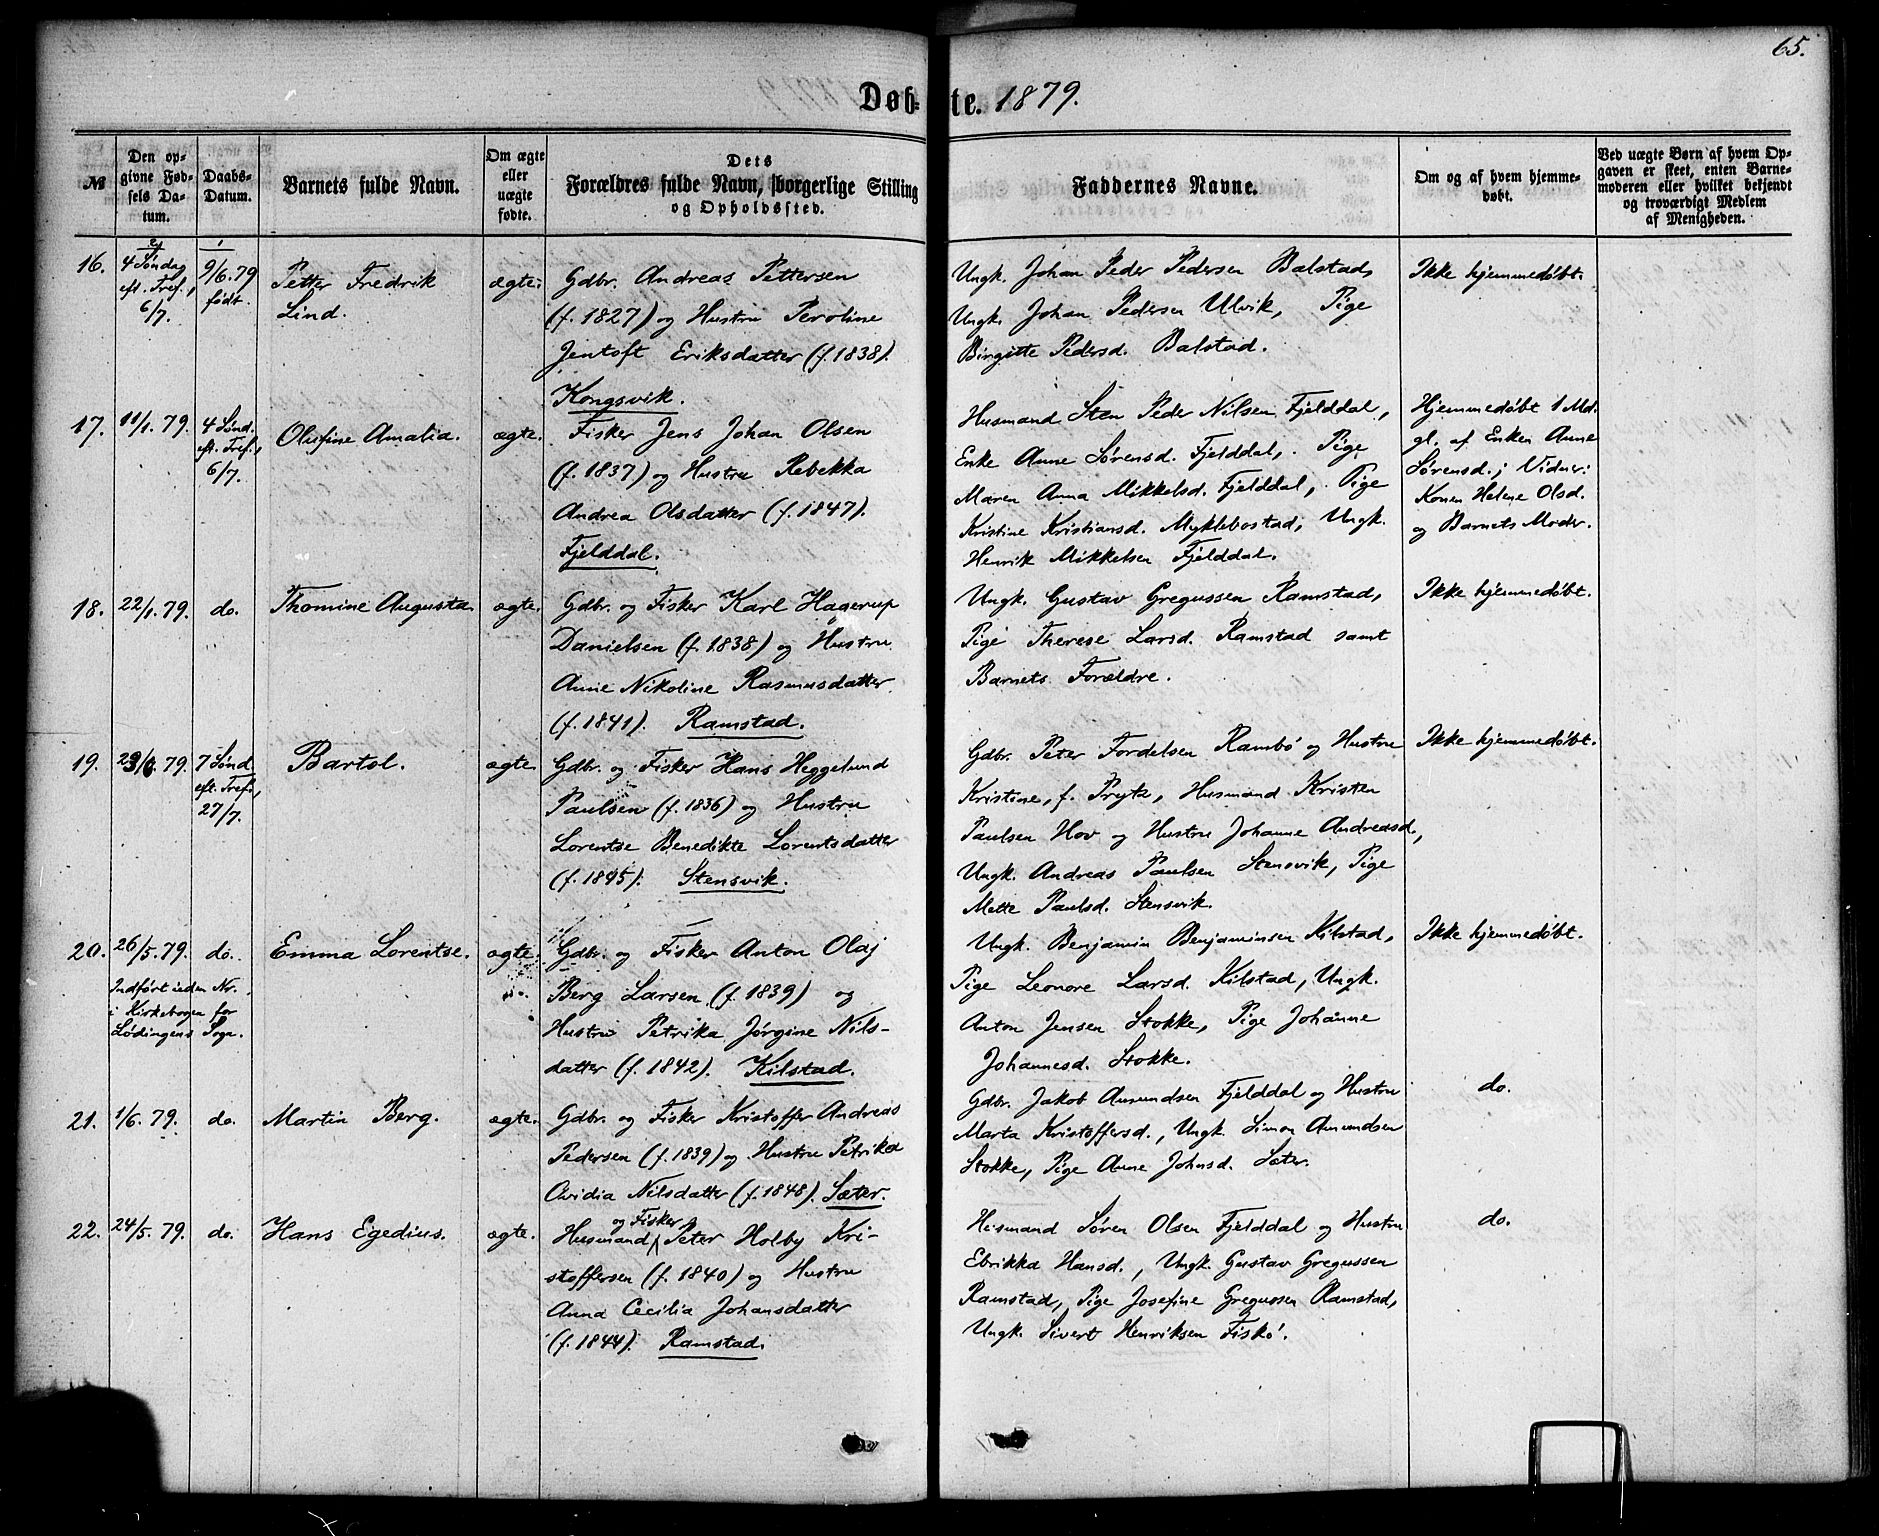 65.
Døb-
te. 1879.
№
Den op-
givne Fød-
sels Da-
tum.
Daabs-
Datum.
Barnets fulde Navn.
Om ægte
eller
uægte
fødte.
Dets
Forældres fulde Navn, borgerlige Stilling
og Opholdssted.
Faddernes Navne.
Om og af hvem hjemme-
døbt.
Ved uægte Børn af hvem Op-
gaven er skeet, enten Barne-
moderen eller hvilket bekjendt
og troværdigt Medlem
af Menigheden.
16.
2
4 Søndag
eft. Tref.,
6/7.
1
9/6. 79
født.
Petter Fredrik
Lind.
ægte.
Gdbr. Andreas Pettersen
(f. 1827) og Hustru Peroline
Jentoft Eriksdatter (f. 1838).
Kongsvik.
Ungk. Johan Peder Pedersen Balstad,
Ungk. Johan Pedersen Ulvik, Pige
Birgitte Pedersd. Balstad.
Ikke hjemmedøbt.
17.
11/1. 79.
4 Sønd.
eft. Tref.,
6/7.
Olufine Amalia.
ægte.
Fisker Jens Johan Olsen
(f. 1837) og Hustru Rebekka
Andrea Olsdatter (f. 1847).
Fjelddal.
Husmand Sten Peder Nilsen Fjelddal,
Enke Anne Sørensd. Fjelddal, Pige
Maren Anna Mikkelsd. Fjelddal, Pige
Kristine Kristiansd. Myklebostad, Ungk.
Henrik Mikkelsen Fjelddal.
Hjemmedøbt 1 Md.
gl. af Enken Anne
Sørensd.; Vidner:
Konen Helene Olsd.
og Barnets Moder.
18.
22/1. 79.
do.
Thomine Augusta.
ægte.
Gdbr. og Fisker Karl Hagerup
Danielsen (f. 1838) og Hustru
Anne Nikoline Rasmusdatter
(f. 1841). Ramstad.
Ungk. Gustav Gregussen Ramstad,
Pige Therese Larsd. Ramstad samt
Barnets Forældre.
Ikke hjemmedøbt.
19.
79.
7 Sønd.
eft. Tref.,
27/7.
Bartol.
ægte.
Gdbr. og Fisker Hans Heggelund
Paulsen (f. 1836) og Hustru
Lorentse Benedikte Lorentsdatter
(f. 1845). Stensvik.
Gdbr. Peter Fordelsen Rambø og Hustru
Kristine, f. Prytz, Husmand Kristen
Paulsen Hov og Hustru Johanne Andreasd.,
Ungk. Andreas Paulsen Stensvik, Pige
Mette Paulsd. Stensvik.
Ikke hjemmedøbt.
20.
26/5. 79.
do.
Emma Lorentse.
ægte.
Gdbr. og Fisker Anton Olaj
Berg Larsen (f. 1839) og
Hustru Petrika Jørgine Nils-
datter (f. 1842). Kilstad.
Indført uden Nr.
i Kirkebogen for
Lødingens Sogn.
Ungk. Benjamin Benjaminsen Kilstad,
Pige Leonore Larsd. Kilstad, Ungk.
Anton Jensen Stokke, Pige Johanne
Johannesd. Stokke.
Ikke hjemmedøbt.
21.
1/6. 79.
do.
Martin Berg.
ægte.
Gdbr. og Fisker Kristoffer Andreas
Pedersen (f. 1839) og Hustru Petrika
Ovidia Nilsdatter (f. 1848). Sæter.
Gdbr. Jakob Amundsen Fjelddal og Hustru
Marta Kristoffersd., Ungk. Simon Amundsen
Stokke, Pige Anne Johnsd. Sæter.
do.
22.
24/5. 79.
do.
Hans Egedius.
ægte.
og Fisker
Husmand Peter Holby Kri-
stoffersen (f. 1840) og Hustru
Anna Cecilia Johansdatter
(f. 1844). Ramstad.
Husmand Søren Olsen Fjelddal og Hustru
Ebrikka Hansd., Ungk. Gustav Gregussen
Ramstad, Pige Josefine Gregussen Ramstad,
Ungk. Sivert Henriksen Fiskø.
do.